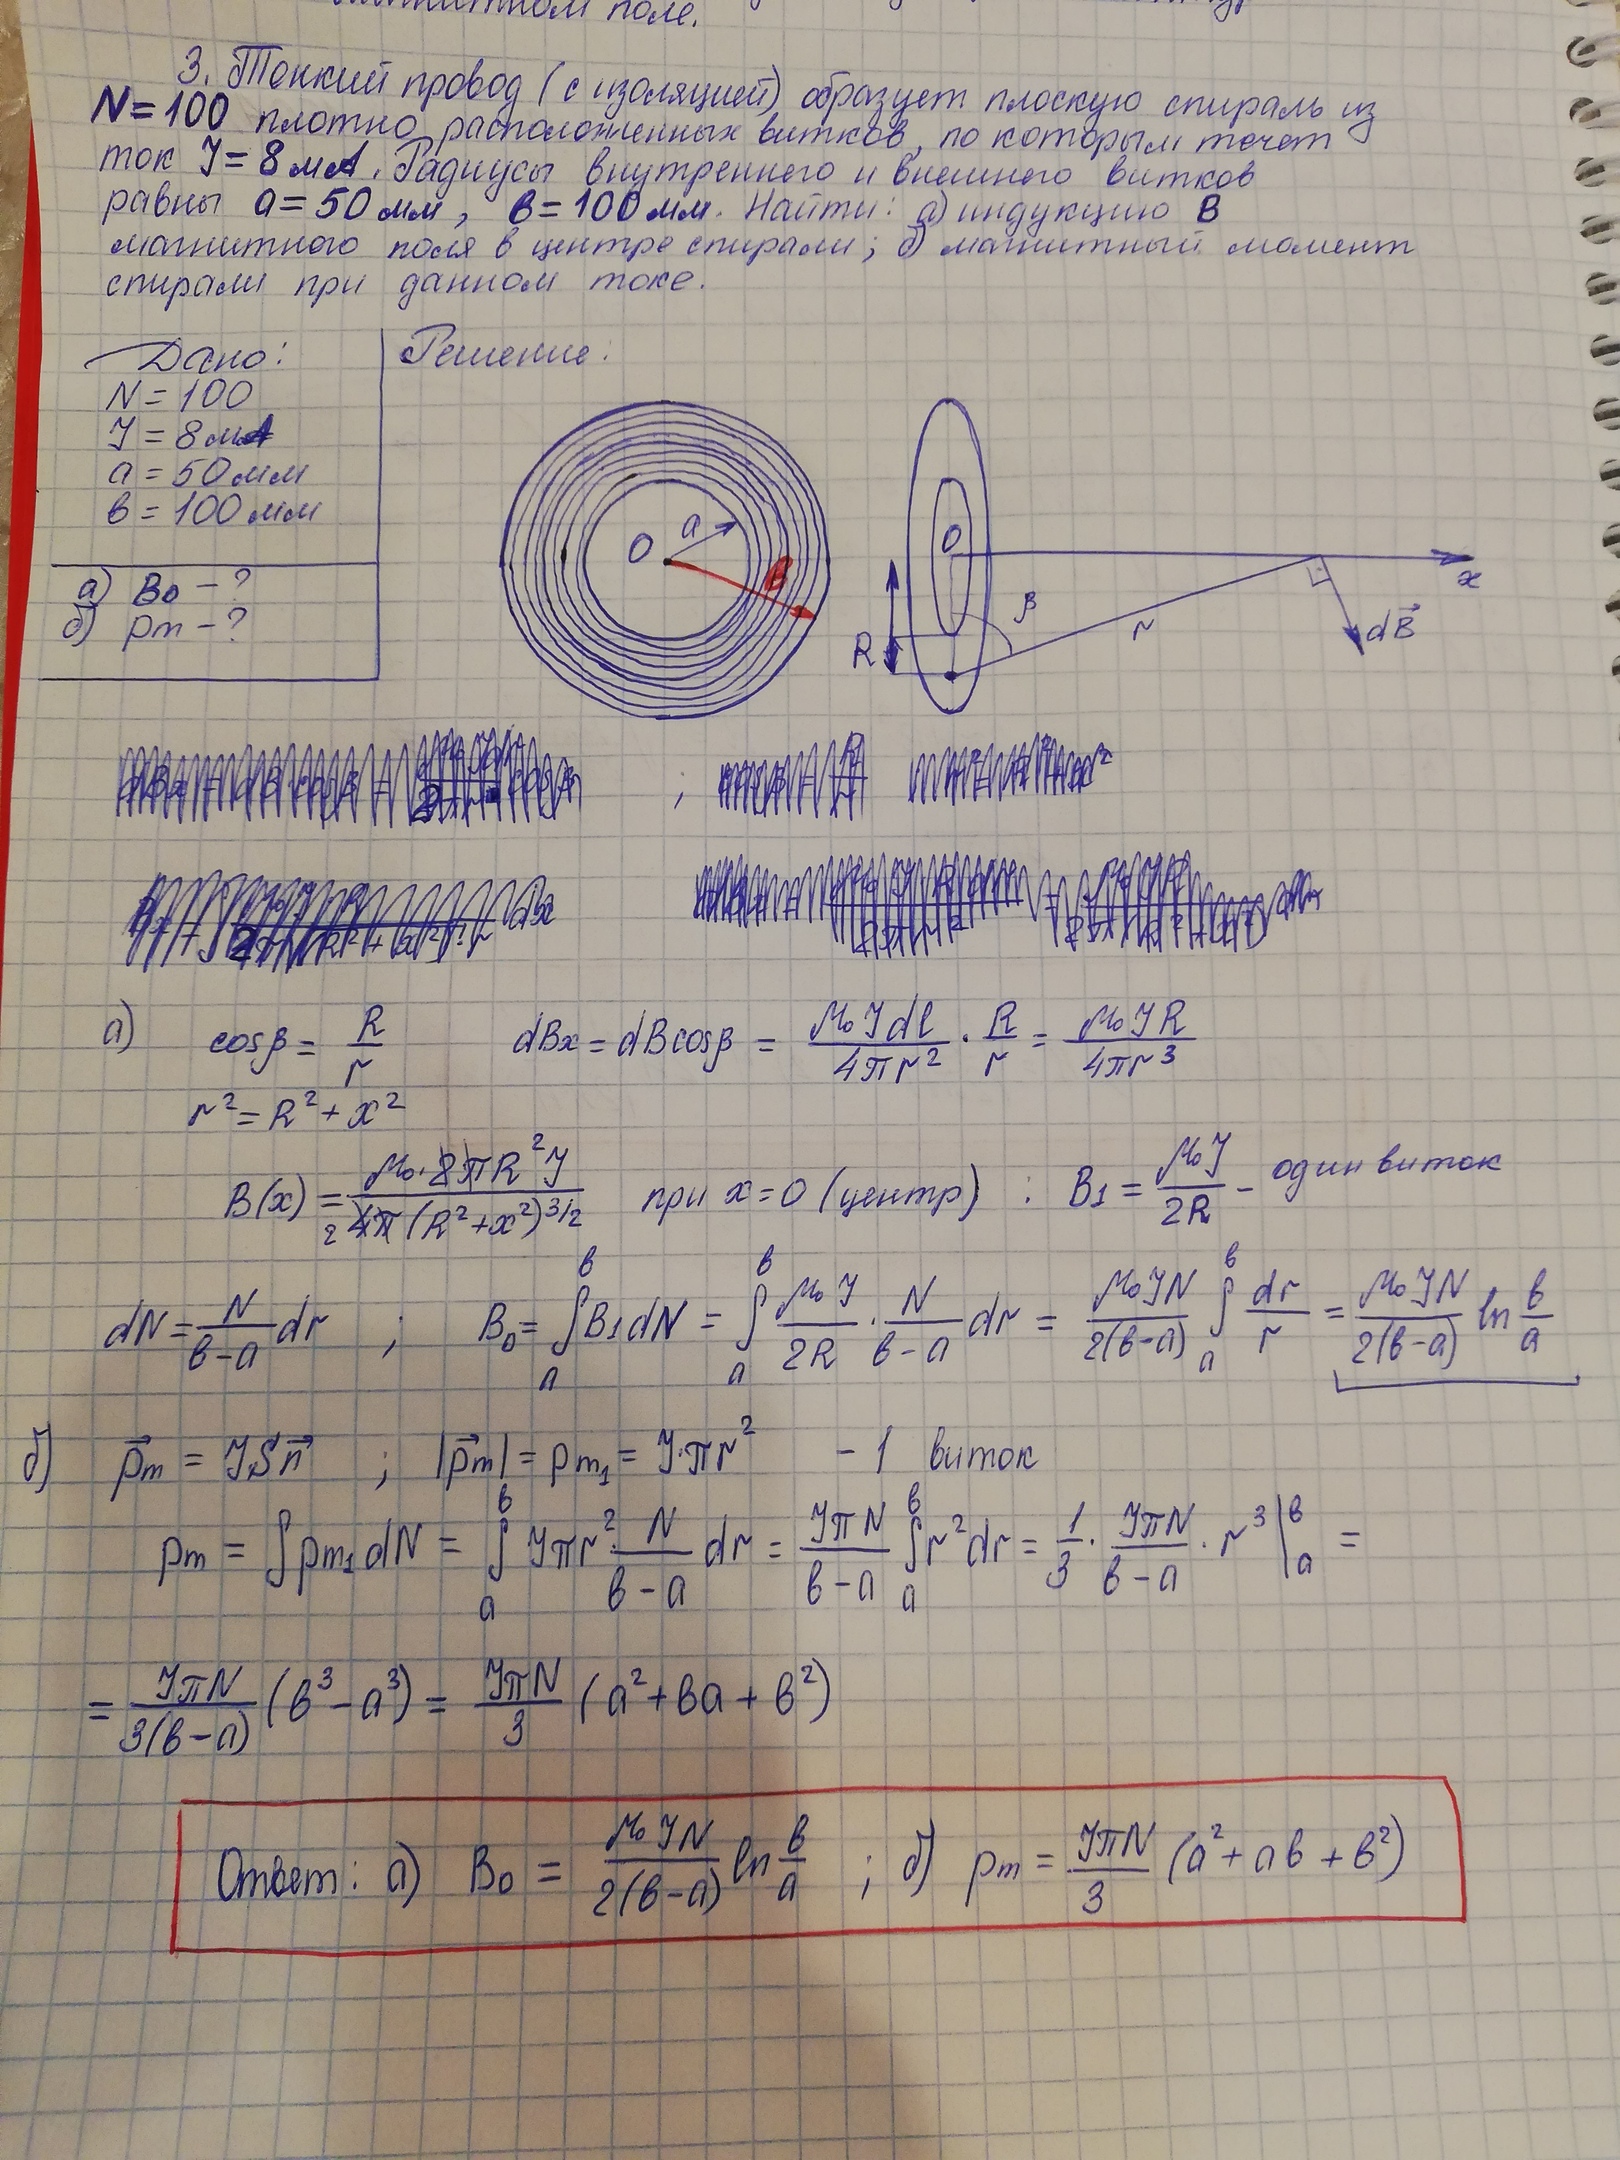 магнитном поле.
3. Тонкий провод (с изоляцией) образует плоскую спираль из
N=100 плотно расположенных витков, по которым течет
ток I = 8 мА. Радиусы внутреннего и внешнего витков
равны a = 50 мм, в = 100 мм. Найти: а) индукцию B
магнитного поля в центре спирали; б) магнитный момент
спирали при данном токе.
Дано:
N = 100
I = 8 мА
a = 50 мм
в = 100 мм
а) B₀ – ?
б) pm – ?
Решение:
O a в
O β r x R dB⃗
а) cosβ = R/r dBx = dBcosβ = μ₀Idl/4πr² · R/r = μ₀IR/4πr³
r² = R² + x²
B(x) = μ₀·2πR²I/4π(R²+x²)^3/2 при x = 0 (центр) : B₁ = μ₀I/2R – один виток
2
dN = N/(в-a) dr ; B₀ = ∫ₐᵇ B₁dN = ∫ₐᵇ μ₀I/2R · N/(в-a) dr = μ₀IN/2(в-a) ∫ₐᵇ dr/r = μ₀IN/2(в-a) ln в/a
б) p⃗m = ISn⃗ ; |p⃗m| = pm₁ = I·πr² – 1 виток
pm = ∫pm₁dN = ∫ₐᵇ Iπr² · N/(в-a) dr = IπN/(в-a) ∫ₐᵇ r²dr = 1/3 · IπN/(в-a) · r³|ₐᵇ =
= IπN/3(в-a) (в³-a³) = IπN/3 (a²+вa+в²)
Ответ: а) B₀ = μ₀IN/2(в-a) ln в/a ; б) pm = IπN/3 (a²+aв+в²)